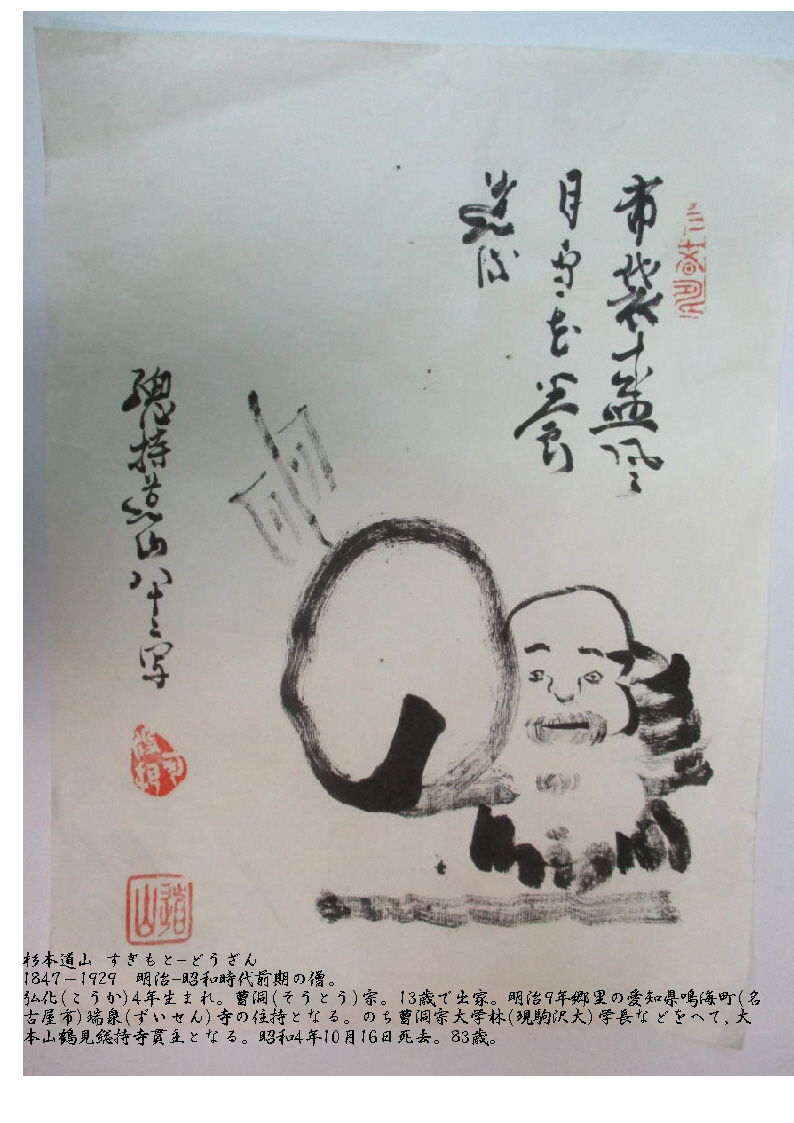 布袋
風
月雪花
總持道山八十三写
道山
杉本道山 すぎもと−どうざん
1847−1929 明治−昭和時代前期の僧。
弘化(こうか)4年生まれ。曹洞(そうとう)宗。13歳で出家。明治9年郷里の愛知県鳴海町(名
古屋市)瑞泉(ずいせん)寺の住持となる。のち曹洞宗大学林(現駒沢大)学長などをへて,大
本山鶴見総持寺貫主となる。昭和4年10月16日死去。83歳。